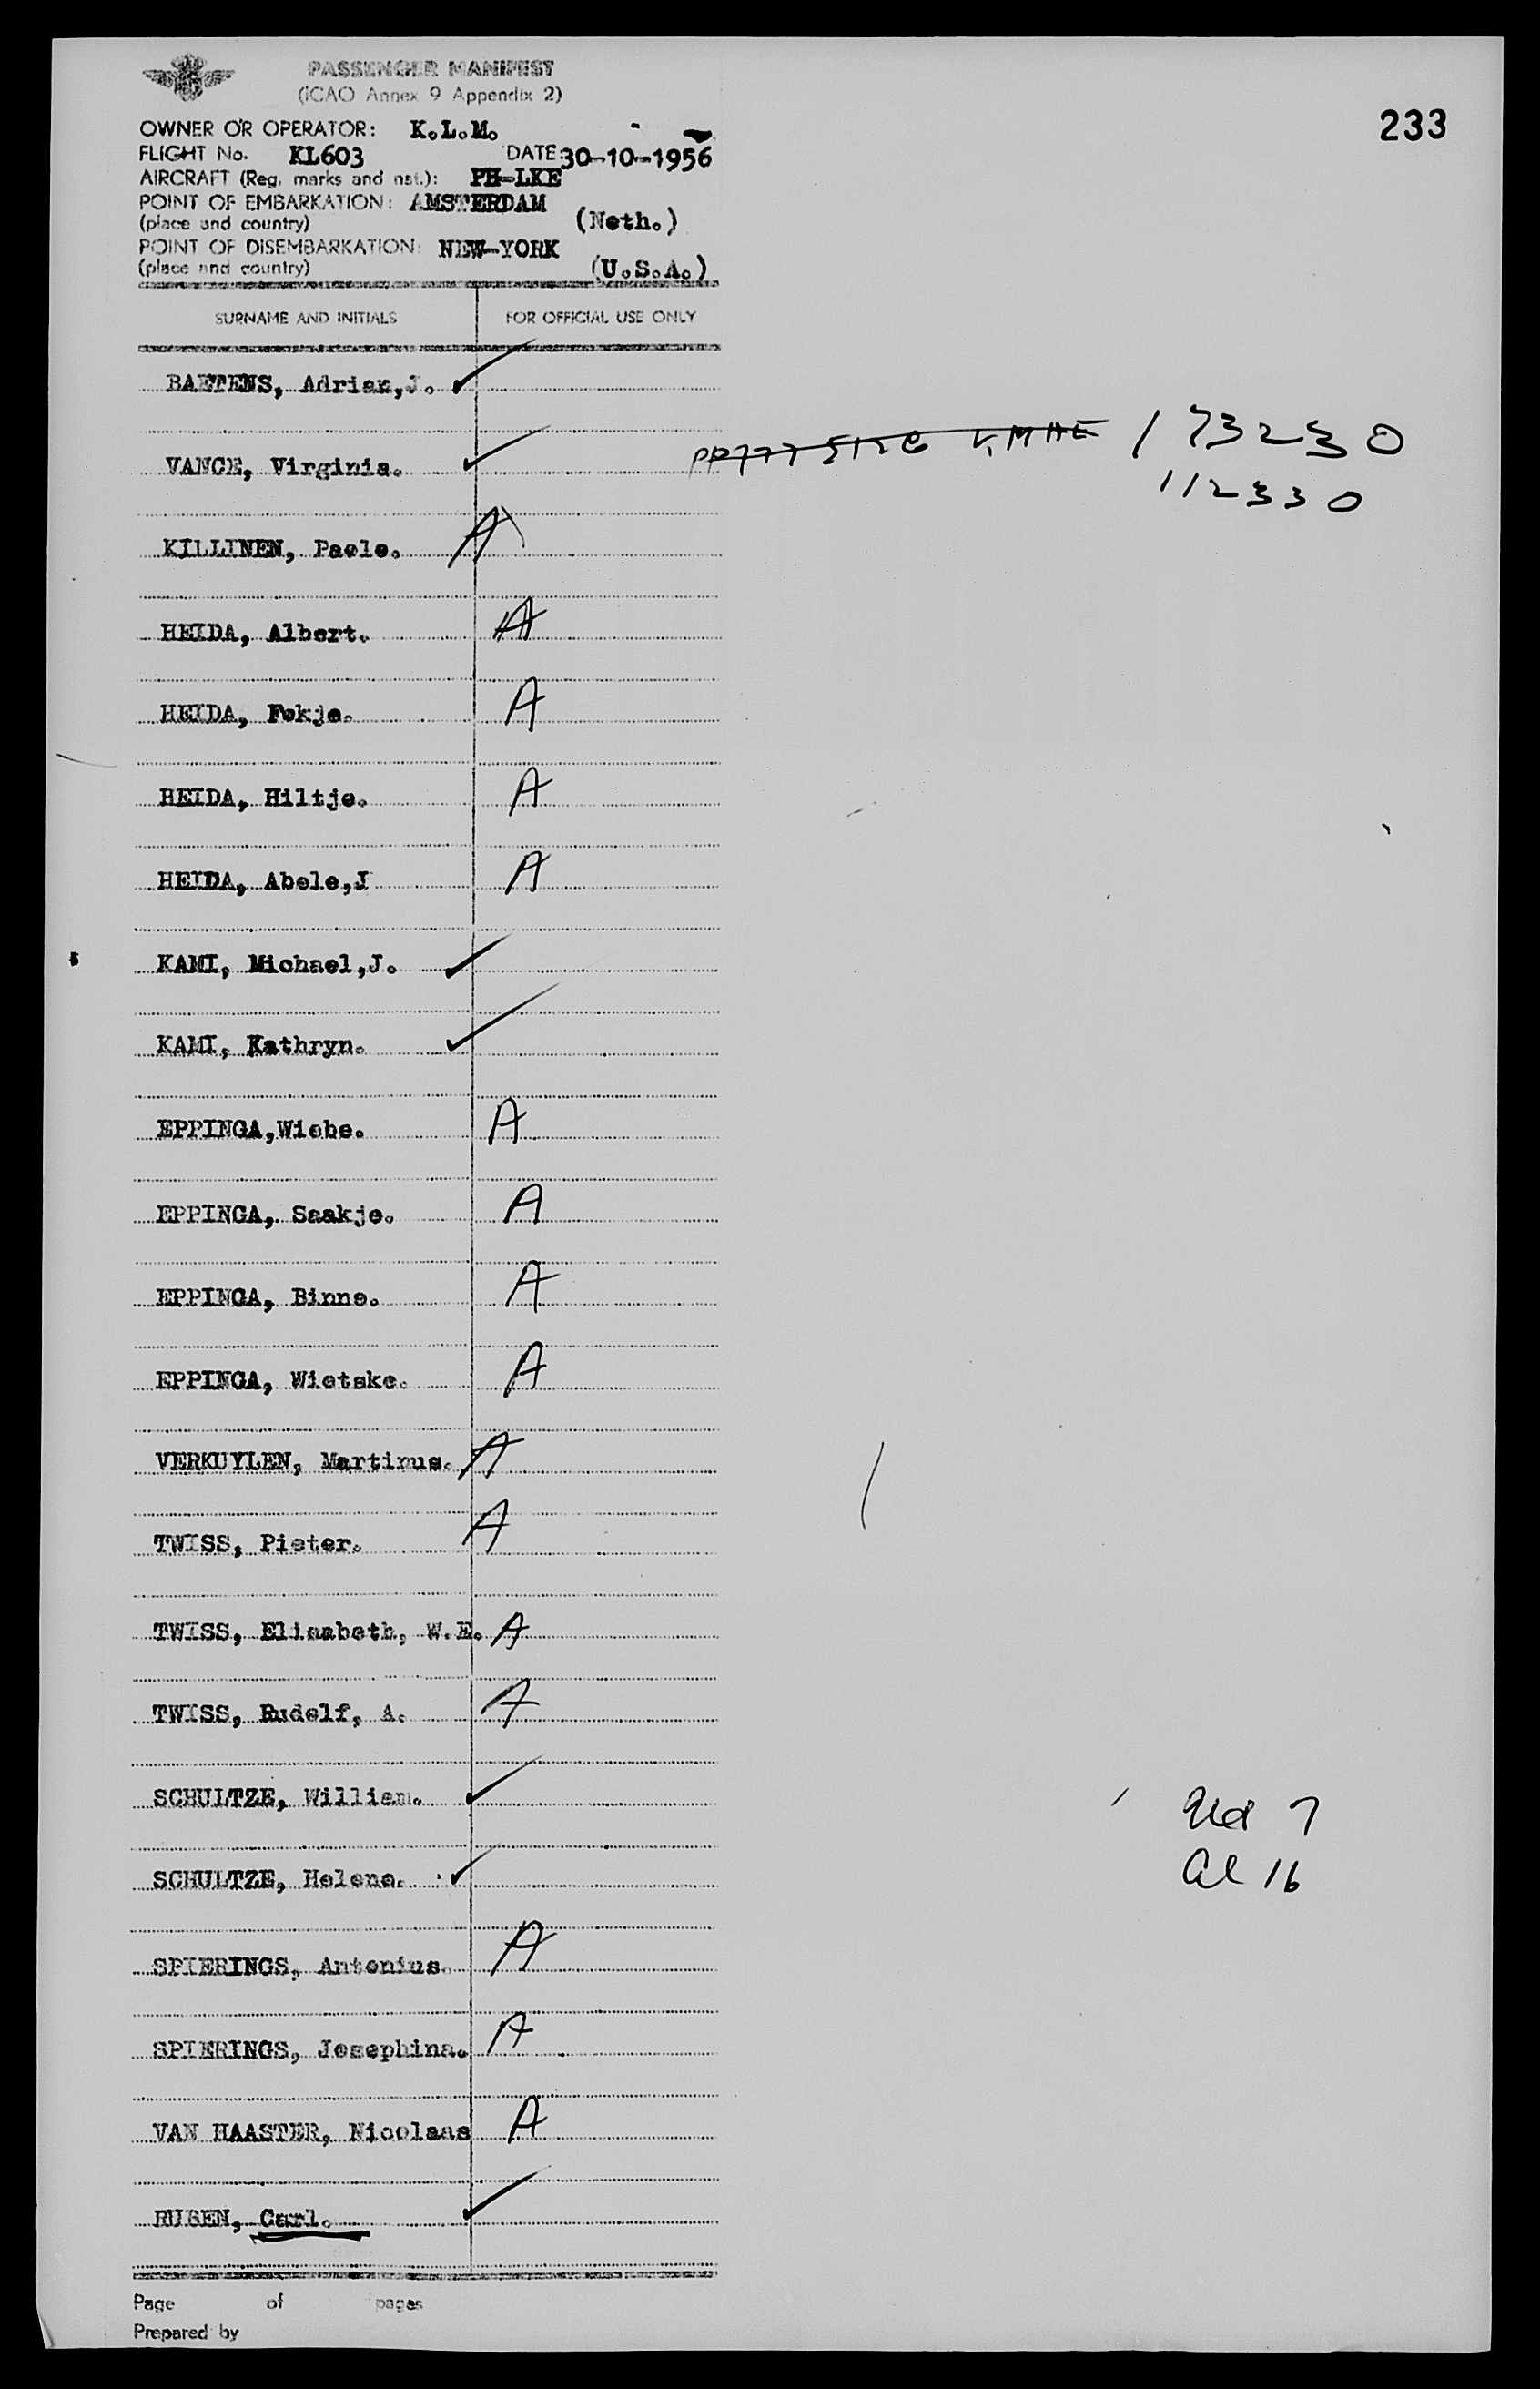 PASSENGER MANIFEST
(ICAO Annex 9 Appendix 2)
233
OWNER OR OPERATOR: K.L.M.
FLIGHT No. KL603 DATE: 30-10-1956
AIRCRAFT (Reg. marks and nat.): PH-LKE
POINT OF EMBARKATION: AMSTERDAM
(place and country) (Neth.)
POINT OF DISEMBARKATION: NEW-YORK
(place and country) (U.S.A.)
SURNAME AND INITIALS FOR OFFICIAL USE ONLY
BAETENS, Adrian,J. ✓
173230
VANCE, Virginia. ✓
112330
KILLINEN, Paele. A
HEIDA, Albert. A
HEIDA, Fokje. A
HEIDA, Hiltje. A
HEIDA, Abele,J A
KAMI, Michael,J. ✓
KAMI, Kathryn. ✓
EPPINGA,Wiebe. A
EPPINGA, Saakje. A
EPPINGA, Binne. A
EPPINGA, Wietske. A
VERKUYLEN, Martinus. A
TWISS, Pieter. A
TWISS, Elisabeth, W.E. A
TWISS, Rudolf, A. A
SCHULTZE, William. ✓
7
SCHULTZE, Helene. ✓
al 16
SPIERINGS, Antonius. A
SPIERINGS, Josephina. A
VAN HAASTER, Nicolaas A
RUBEN, Carl. ✓
Page of pages
Prepared by